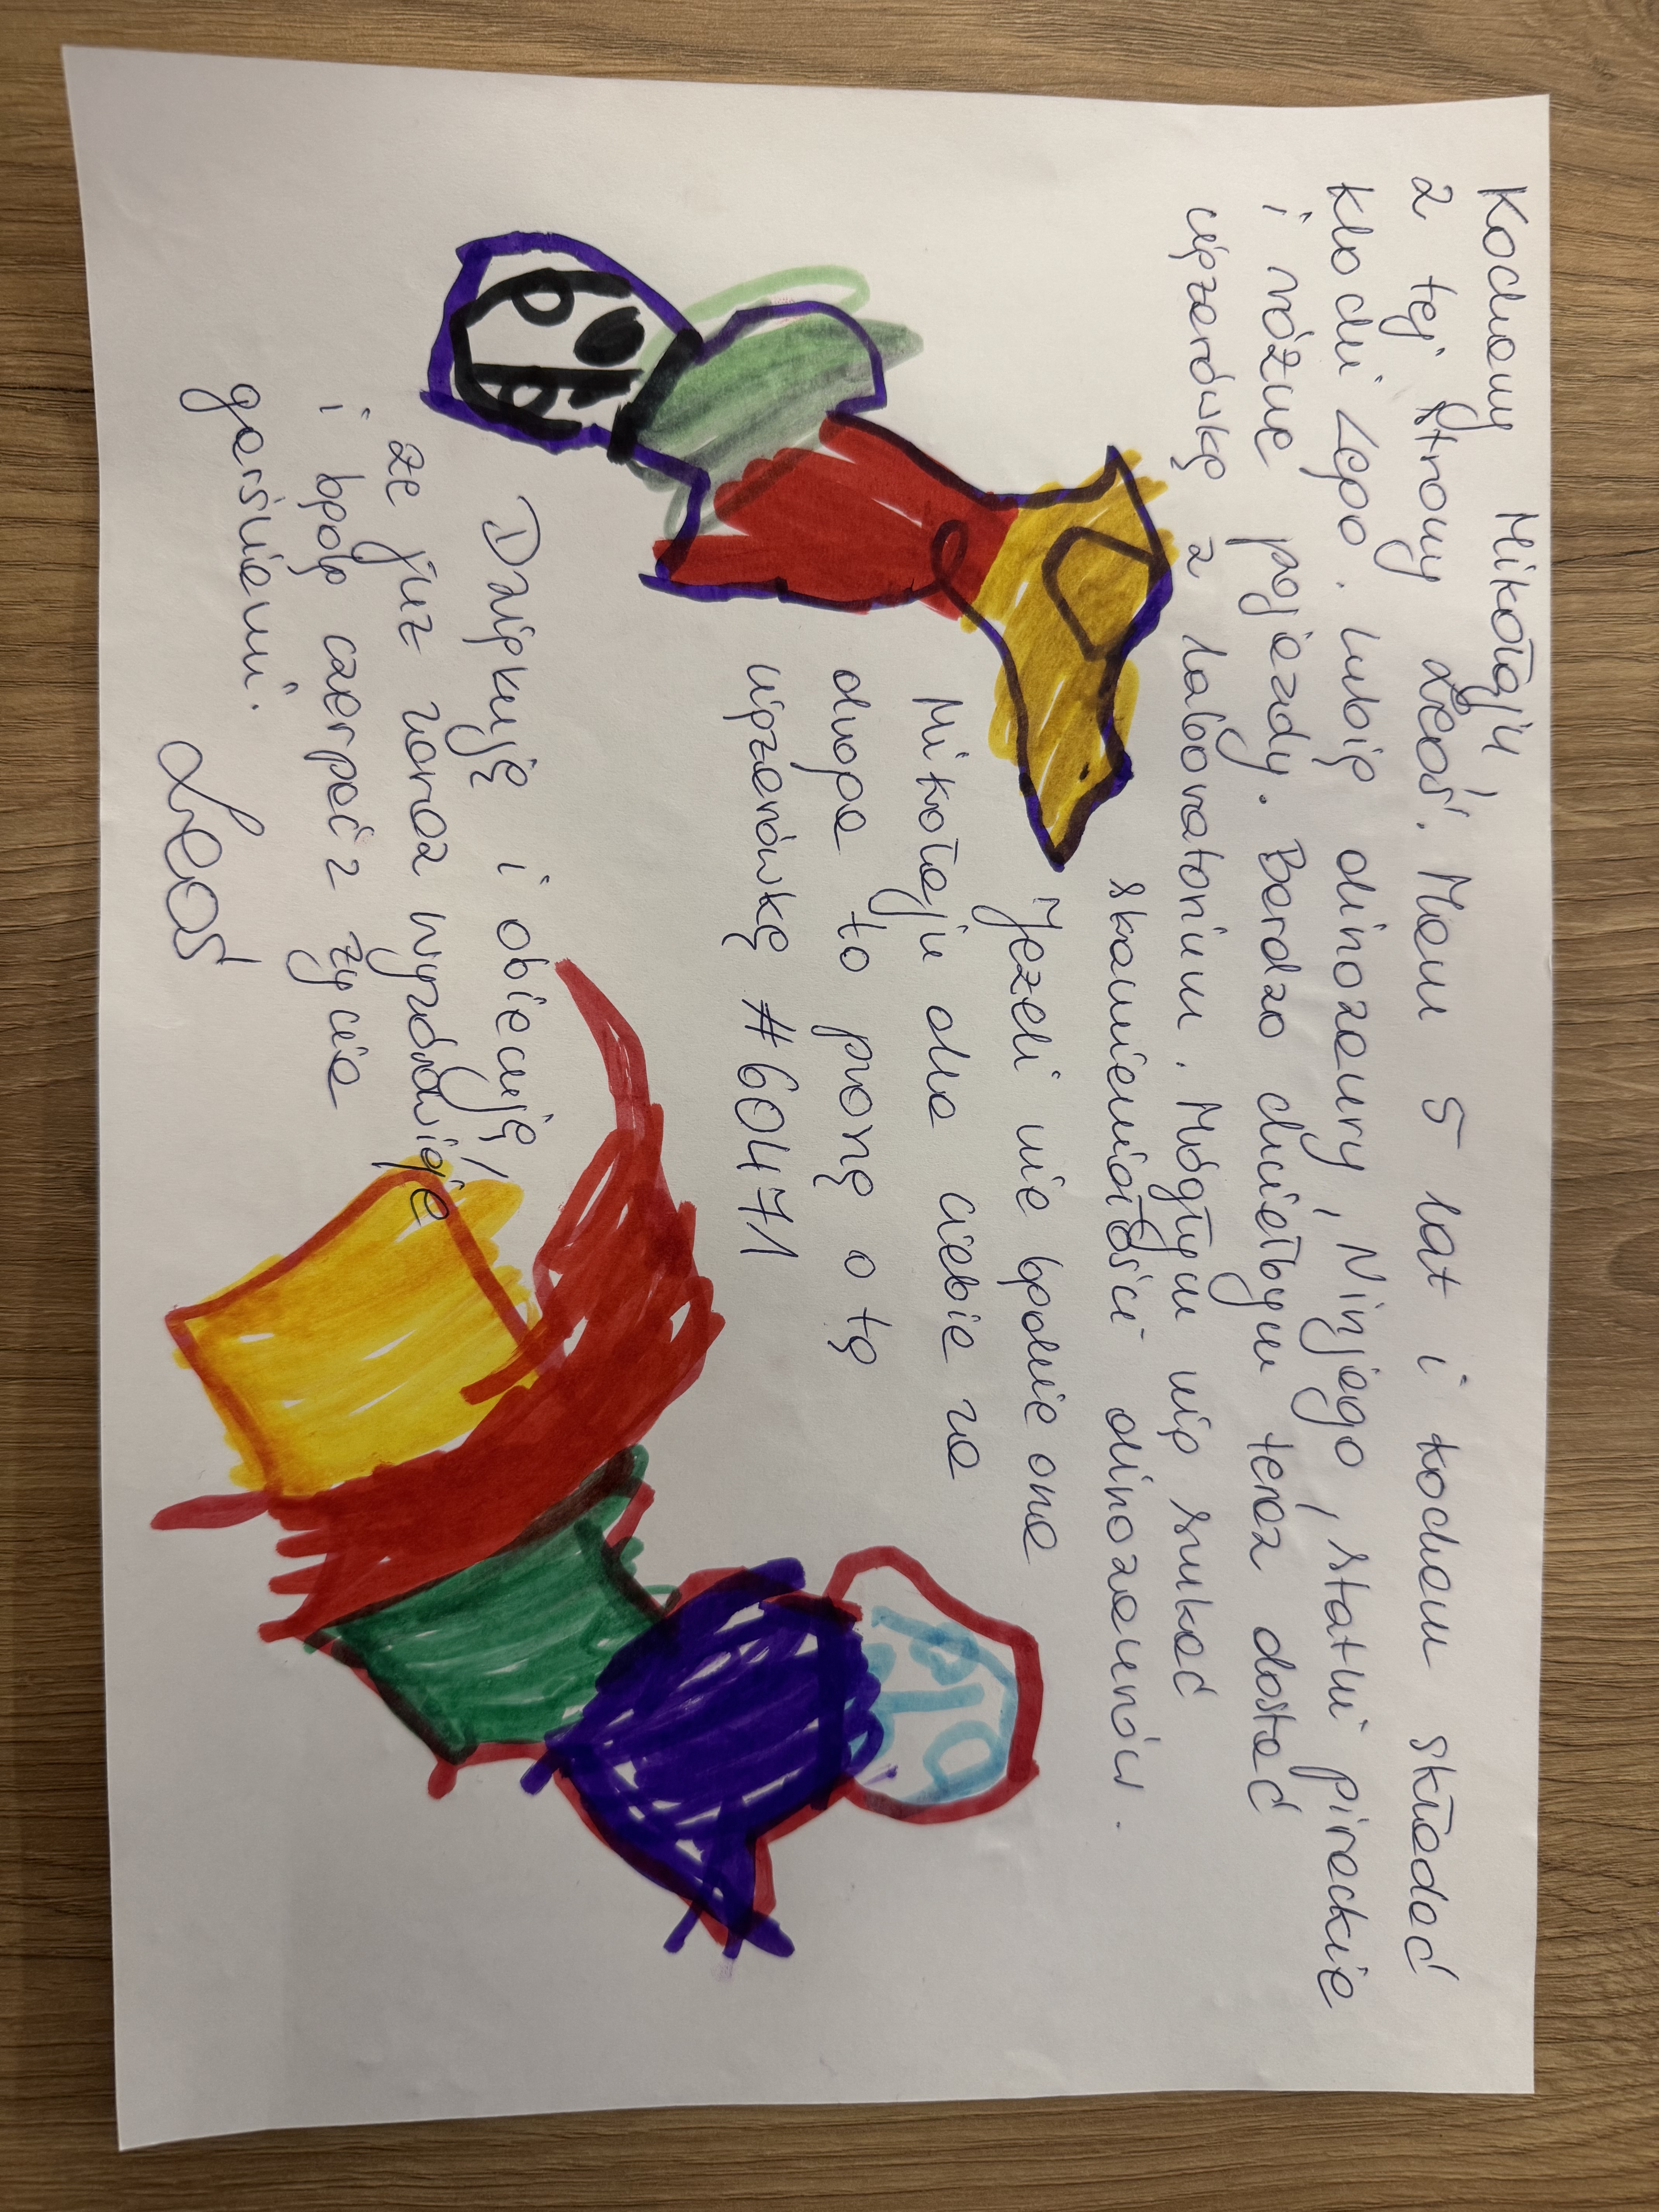 Kochany Mikołaju!
z tej strony Leoś. Mam 5 lat i kocham składać
klocki Lego. Lubię dinozaury, Ninjago, statki pirackie
i różne pojazdy. Bardzo chciałbym teraz dostać
ciężarówkę z laboratorium. Mógłbym nią szukać
skamieniałości dinozaurów.
Jeżeli nie będzie ona
Mikołaju dla Ciebie za
droga to proszę o tę
ciężarówkę #60471
Dziękuję i obiecuję,
że już zaraz wyzdrowieję
i będę czerpać z życia
garściami.
Leoś